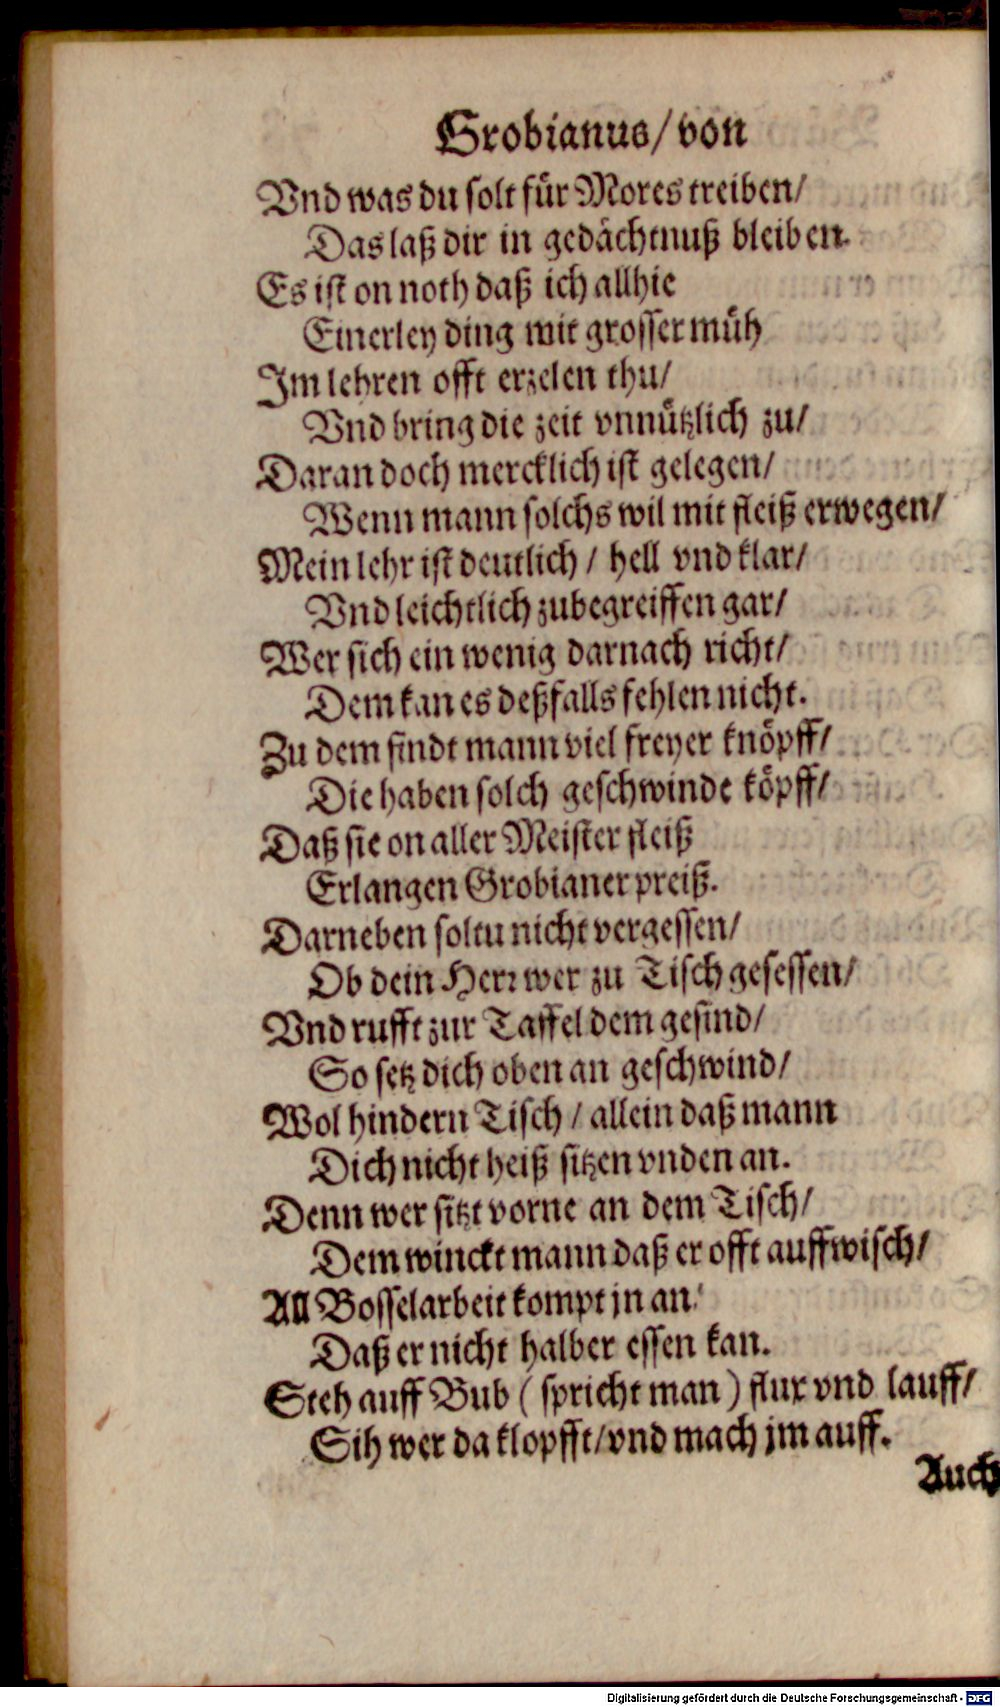 Grobianus/ von
Vnd was du solt für Mores treiben/
Das laß dir in gedächtnuß bleiben.
Es ist on noth daß ich allhie
Einerley ding mit grosser müh
Im lehren offt erzelen thu/
Vnd bring die zeit vnnützlich zu/
Daran doch mercklich ist gelegen/
Wenn mann solchs wil mit fleiß erwegen/
Mein lehr ist deutlich / hell vnd klar/
Vnd leichtlich zubegreiffen gar/
Wer sich ein wenig darnach richt/
Dem kan es deßfalls fehlen nicht.
Zu dem findt mann viel freyer knöpff/
Die haben solch geschwinde köpff/
Daß sie on aller Meister fleiß
Erlangen Grobianer preiß.
Darneben soltu nicht vergessen/
Ob dein Herr wer zu Tisch gesessen/
Vnd rufft zur Taffel dem gesind/
So setz dich oben an geschwind/
Wol hindern Tisch / allein daß mann
Dich nicht heiß sitzen vnden an.
Denn wer sitzt vorne an dem Tisch/
Dem winckt mann daß er offt auffwisch/
All Bosselarbeit kompt jn an/
Daß er nicht halber essen kan.
Steh auff Bub ( spricht man ) flux vnd lauff/
Sih wer da klopfft/ vnd mach jm auff.
Auch
Digitalisierung gefördert durch die Deutsche Forschungsgemeinschaft - DFG